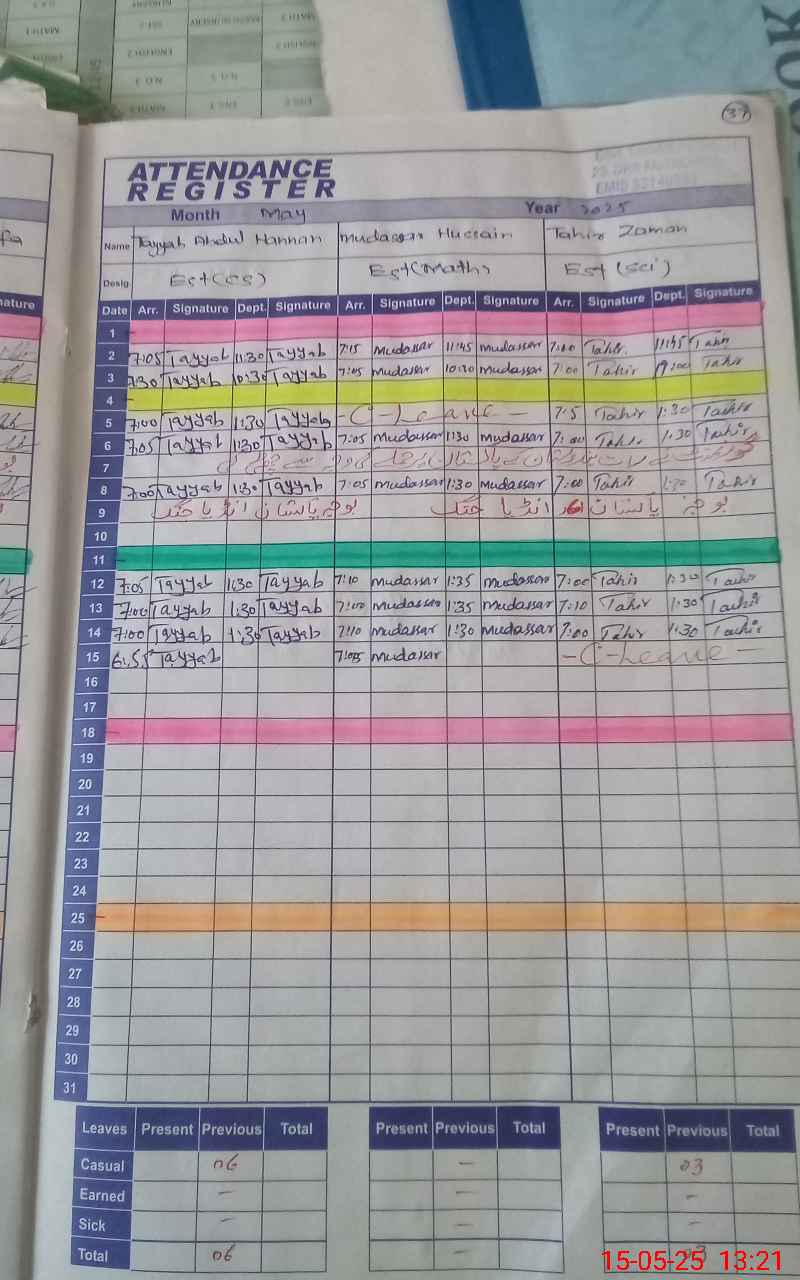 37
ATTENDANCE
REGISTER
Month May Year 2025
Name Tayyab Abdul Hannan Mudassar Hussain Tahir Zaman
Desig. Est(cs) Est(Math) Est(sci)
Date Arr. Signature Dept. Signature Arr. Signature Dept. Signature Arr. Signature Dept. Signature
1
2 7:05 Tayyab 11:30 Tayyab 7:15 Mudassar 11:45 Mudassar 7:00 Tahir 11:45 Tahir
3 7:30 Tayyab 10:30 Tayyab 7:05 Mudassar 10:30 Mudassar 7:00 Tahir Tahir
4
5 7:00 Tayyab 1:30 Tayyab -C-Leave- 7:5 Tahir 1:30 Tahir
6 7:05 Tayyab 1:30 Tayyab 7:05 Mudassar 1:30 Mudassar 7:00 Tahir 1:30 Tahir
7
8 7:00 Tayyab 1:30 Tayyab 7:05 Mudassar 1:30 Mudassar 7:00 Tahir 1:30 Tahir
9 بوجہ پاکستان انڈیا جنگ بوجہ پاکستان انڈیا جنگ
10
11
12 7:05 Tayyab 1:30 Tayyab 7:10 Mudassar 1:35 Mudassar 7:00 Tahir 1:30 Tahir
13 7:00 Tayyab 1:30 Tayyab 7:00 Mudassar 1:35 Mudassar 7:10 Tahir 1:30 Tahir
14 7:00 Tayyab 1:30 Tayyab 7:10 Mudassar 1:30 Mudassar 7:00 Tahir 1:30 Tahir
15 6:55 Tayyab 7:05 Mudassar -C-Leave-
16
17
18
19
20
21
22
23
24
25
26
27
28
29
30
31
Leaves Present Previous Total Present Previous Total Present Previous Total
Casual 06 - 03
Earned - - -
Sick - - -
Total 06 - 03
15-05-25 13:21